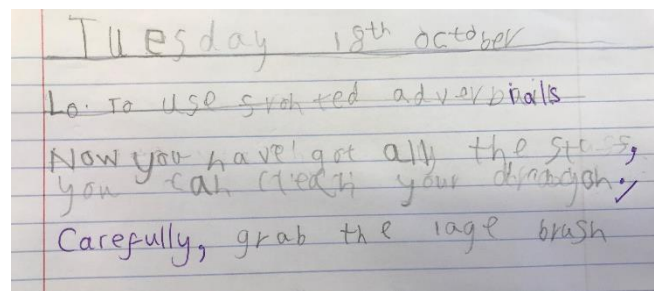 Tuesday 18th october
Lo. To use fronted adverbiails
Now you have got all the stuff,
you can clean your dragon.
Carefully, grab the lage brash